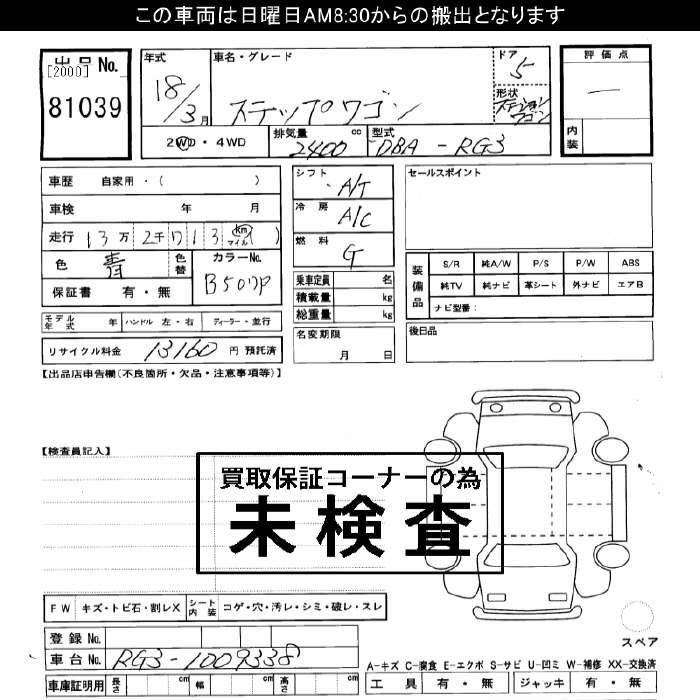 この車両は日曜日AM8:30からの搬出となります
出品 No.
[2000]
81039
年式
18/3月
車名・グレード
ステップワゴン
ドア
5
形状
ステーションワゴン
評価点
—
内装
2WD・4WD
排気量 2400 cc
型式 DBA - RG3
車歴 自家用・( )
車検 年 月
走行 13万2千713 (km マイル)
色 青
色替
カラーNo.
B507P
保証書 有・無
モデル年式 年 ハンドル 左・右 ディーラー・並行
リサイクル料金 13160 円 預託済
シフト A/T
冷房 A/C
燃料 G
乗車定員 名
積載量 kg
総重量 kg
名変期限
月 日
セールスポイント
装備品
S/R 純A/W P/S P/W ABS
純TV 純ナビ 革シート 外ナビ エアB
ナビ型番:
後日品
【出品店申告欄(不良箇所・欠品・注意事項等)】
【検査員記入】
買取保証コーナーの為
未検査
FW キズ・トビ石・割レX シート内装 コゲ・穴・汚レ・シミ・破レ・スレ
登録No.
車台No. RG3-1009338
車庫証明用 長さ cm 幅 cm 高さ cm
スペア
A-キズ C-腐食 E-エクボ S-サビ U-凹ミ W-補修 XX-交換済
工具 有・無 ジャッキ 有・無